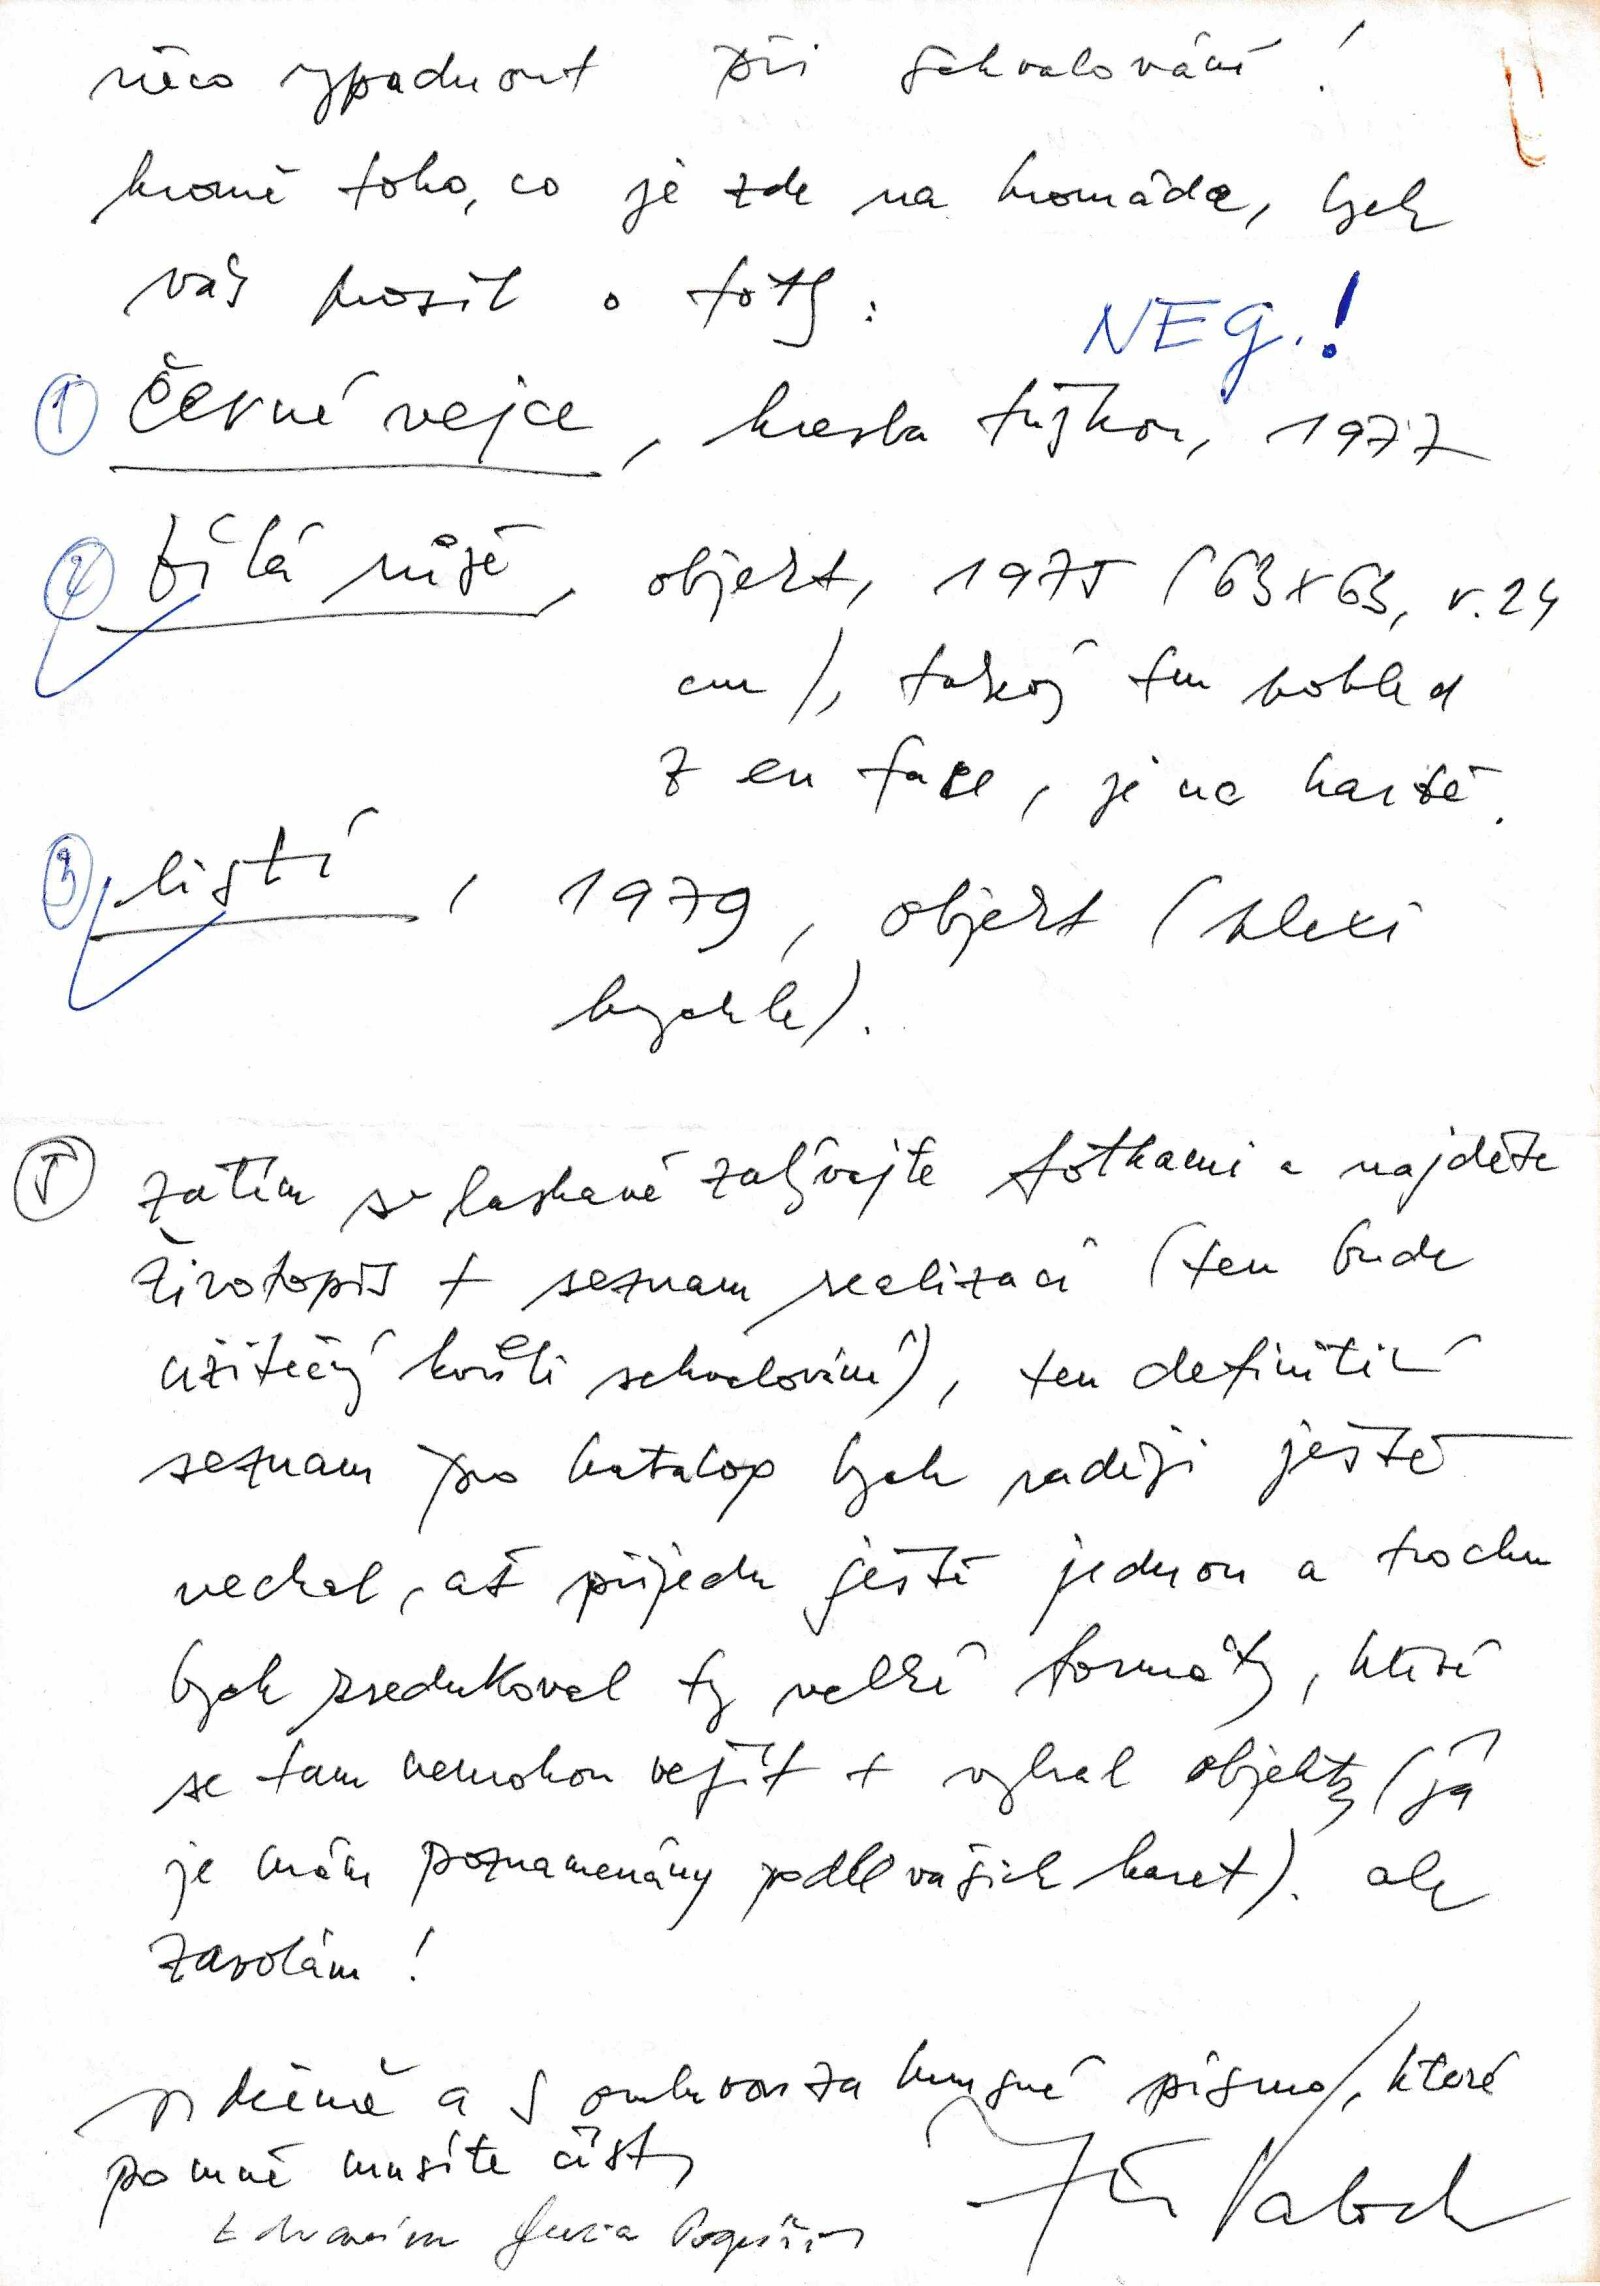 něco vypadnout při schvalování!
kromě toho, co je zde na hromádce, bych
vás prosil o foty:
NEG.!
① černé vejce, kresba tužkou, 1977
② bílá růže, objekt, 1975 (63x63, v. 24
cm), takový ten pohled
z en face, je na kartě.
③ listí, 1979, objekt (plexi
kychle).
⑤ zatím se laskavě zabývejte fotkami a najděte
životopis + seznam realizací (ten bude
užitečný kvůli schvalování), ten definitivní
seznam pro katalog bych raději ještě
nechal, až přijedu ještě jednou a trochu
bych zredukoval ty velké formáty, které
se tam nemohou vejít + vybral objekty (já
je mám poznamenány podle vašich karet). ale
zavolám!
vděčně a s omluvou za hnusné písmo, které
po mně musíte číst,
zdravím